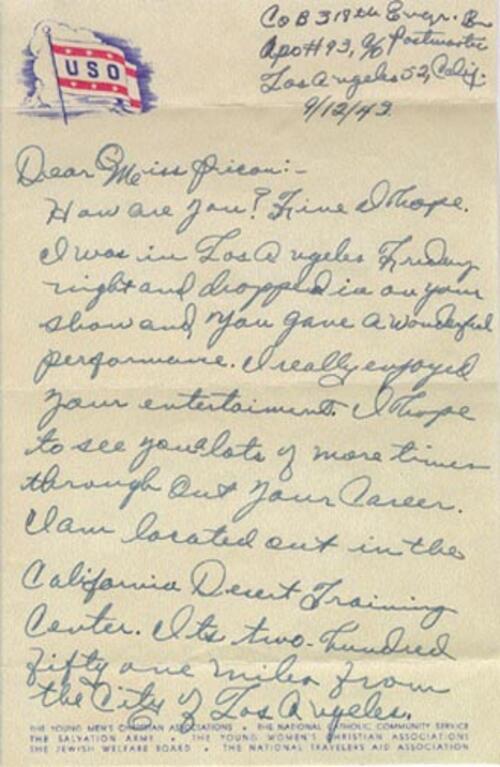 Co B 318th Engr. Bn
Apo# 93, c/o Postmaster
Los Angeles 52, Calif.
9/12/43.
USO
Dear Miss :-
How are you? Fine I hope.
I was in Los Angeles Friday
night and dropped in on your
show and you gave a wonderful
performance. I really enjoyed
your entertaiment. I hope
to see you lots of more times
through out your Career.
I am located out in the
California Desert Training
Center. Its two-hundred
fifty one miles from
the City of Los Angeles.
THE YOUNG MEN'S CHRISTIAN ASSOCIATIONS • THE NATIONAL CATHOLIC COMMUNITY SERVICE
THE SALVATION ARMY • THE YOUNG WOMEN'S CHRISTIAN ASSOCIATIONS
THE JEWISH WELFARE BOARD • THE NATIONAL TRAVELERS AID ASSOCIATION